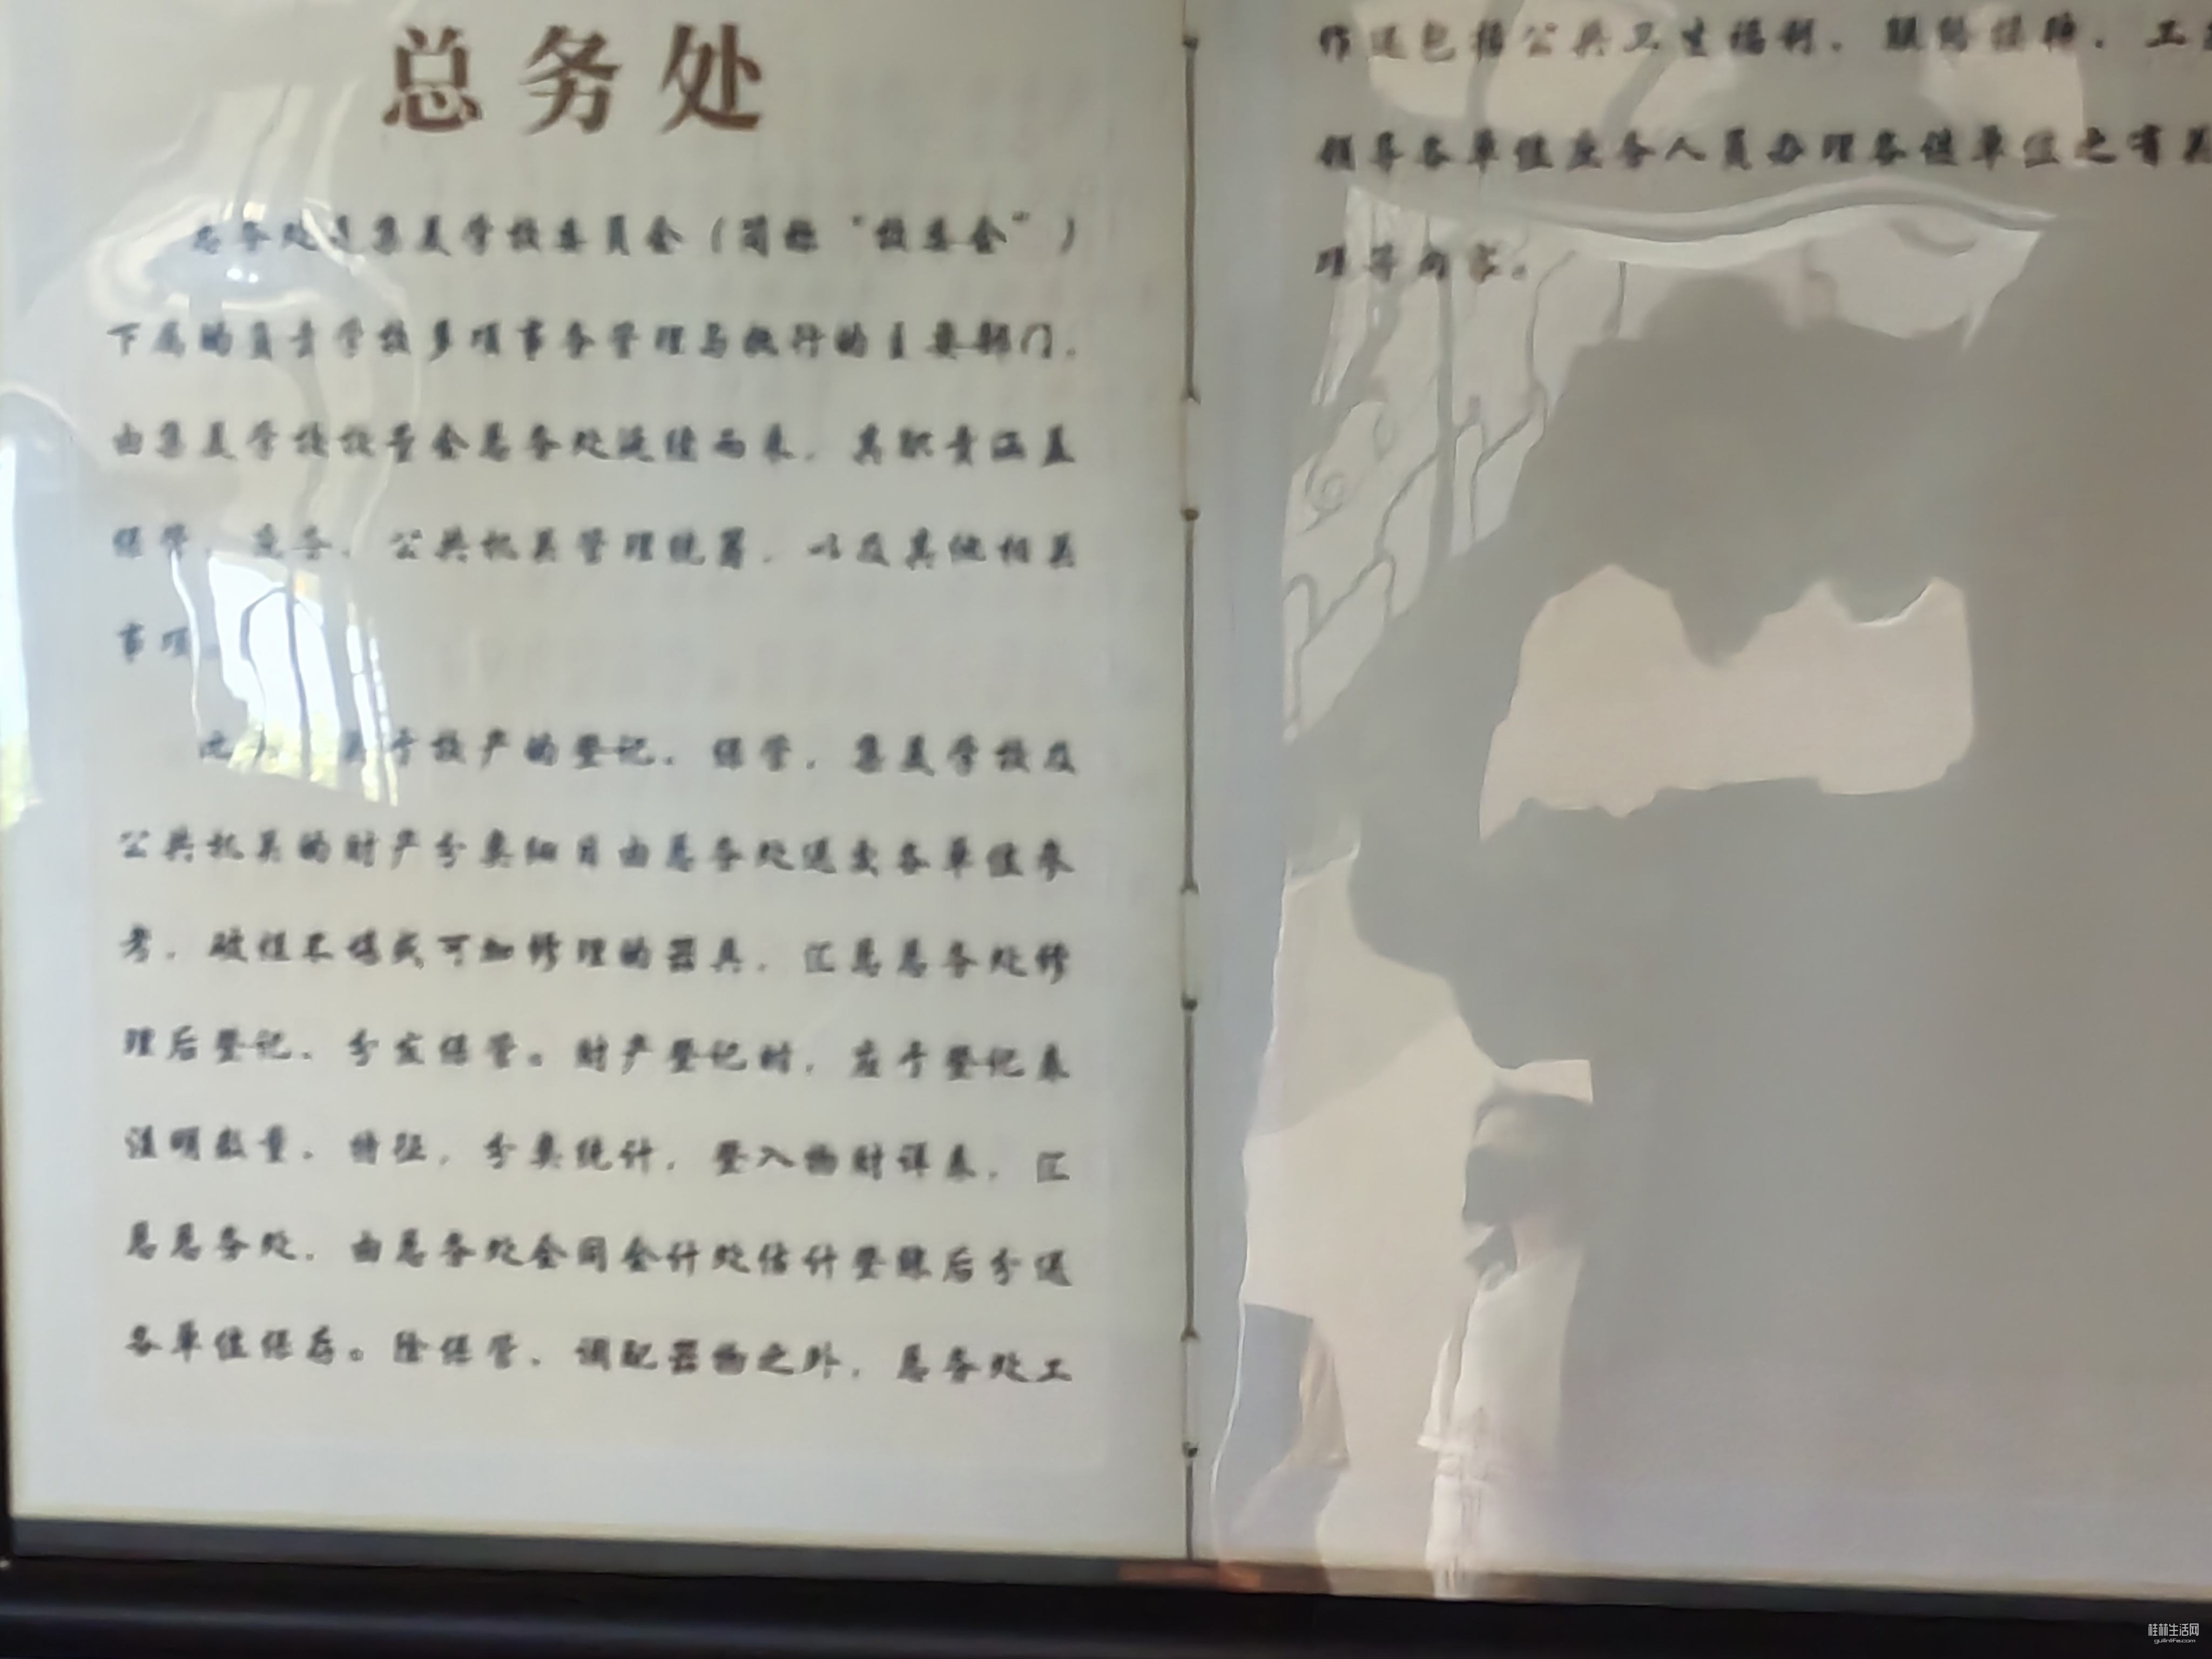 总务处
总务处是集美学校委员会（简称“校委会”）
下属的负责学校多项事务管理与执行的主要部门，
由集美学校校董会总务处延续而来，其职责涵盖
保管、庶务、公共机关管理统筹，以及其他相关
事项。
关于校产的登记、保管，集美学校及
公共机关的财产分类细目由总务处送交各单位参
考，破烂不堪或可加修理的器具，汇总总务处修
理后登记、分发保管。财产登记时，应于登记表
注明数量、特征，分类统计，登入物财详表，汇
总总务处，由总务处会同会计处估计登账后分送
各单位保存。除保管、调配器物之外，总务处工
作还包括公共卫生福利、联络接触、工
领导各单位庶务人员办理各该单位之有关
理等内容。
桂林生活网
guilinlife.com